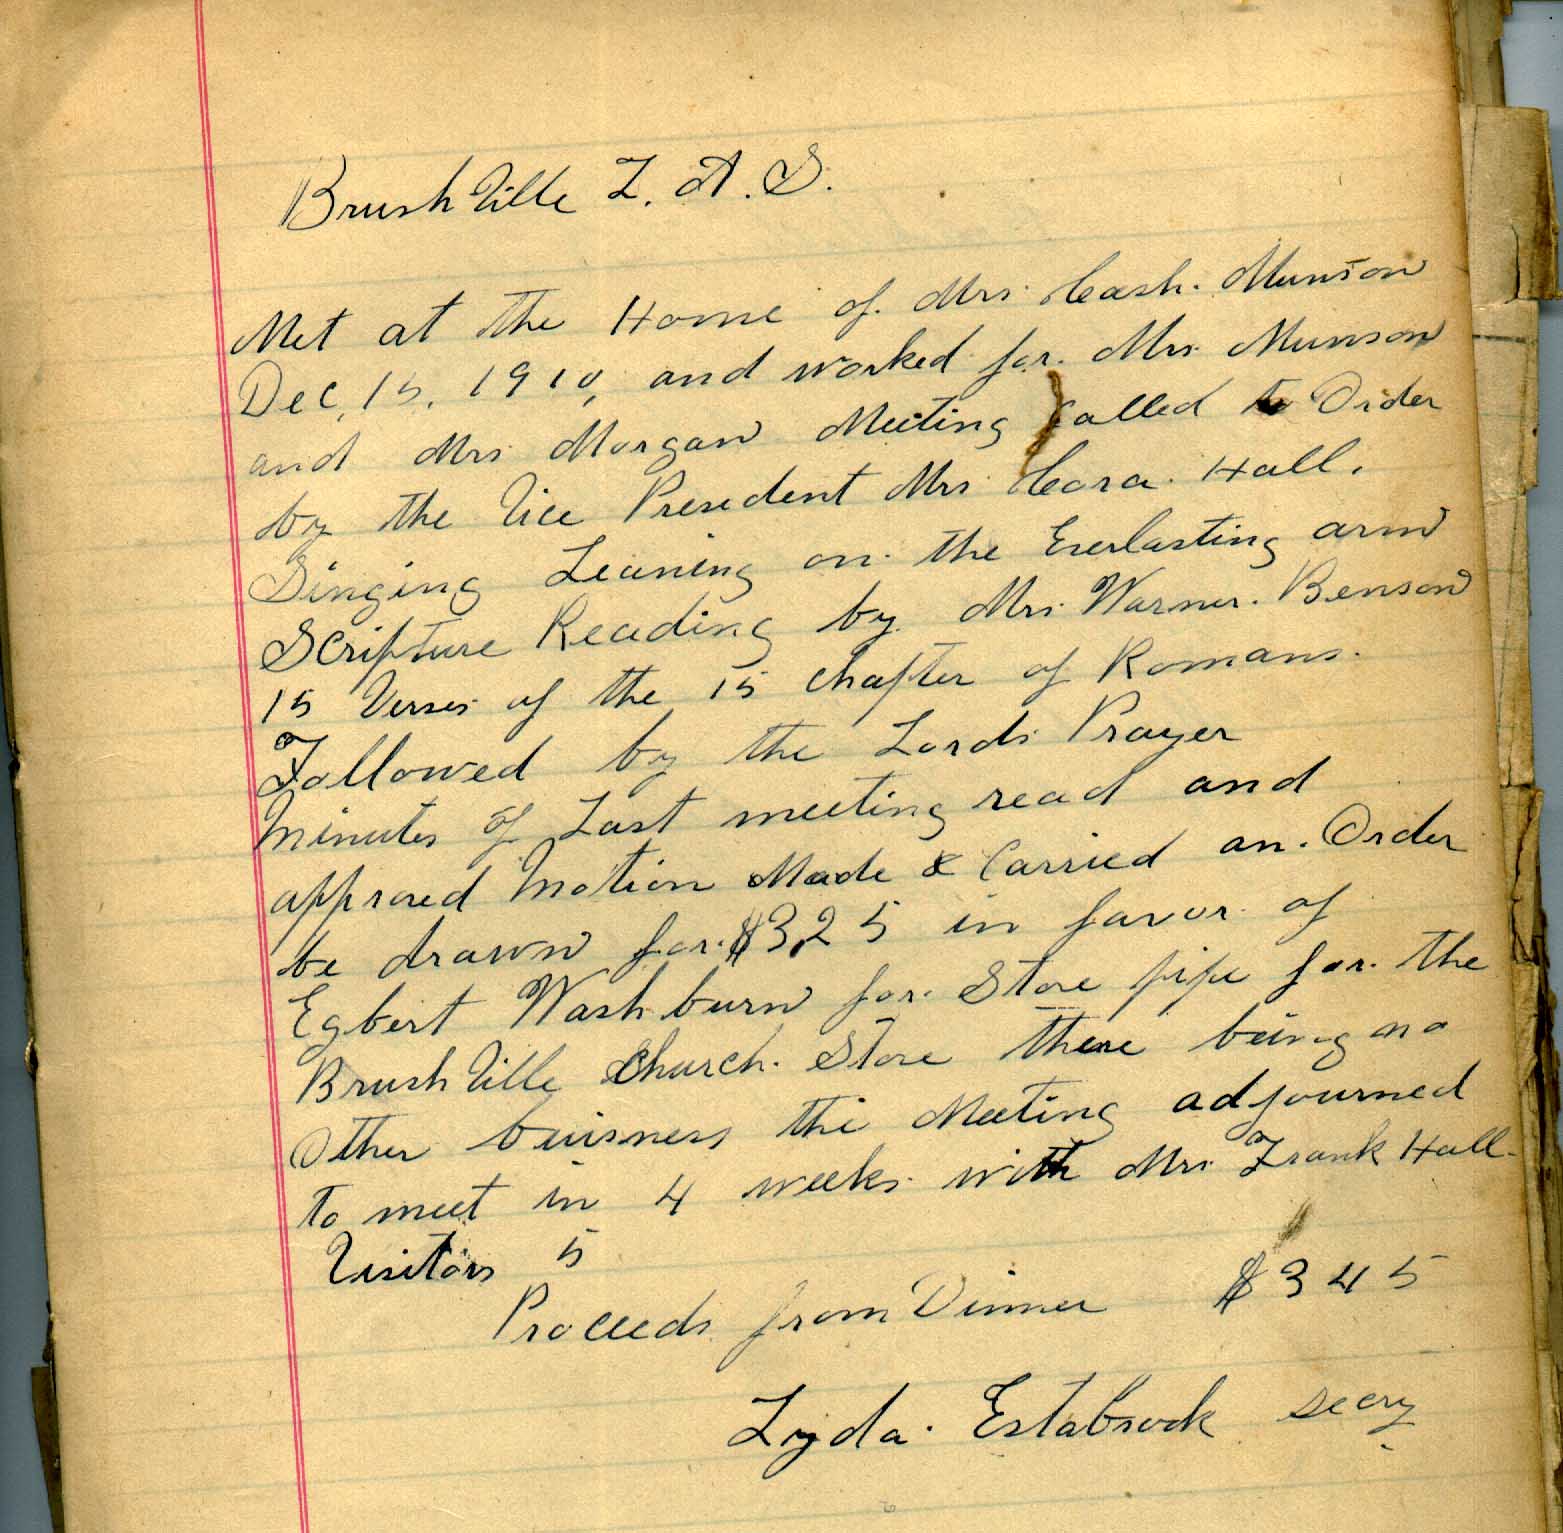 BrushVille L. A. S.
Met at the Home of Mrs Cash. Munson
Dec, 15, 1910, and worked for Mrs Munson
and Mrs Morgan Meeting Called to Order
by the Vice President Mrs Cora Hall.
Singing Leaning on the Everlasting arm
Scripture Reading by Mrs Warner Benson
15 Verses of the 15 chapter of Romans.
Followed by the Lords Prayer
Minutes of Last meeting read and
approved Motion Made & Carried an Order
be drawn for $3,25 in favor of
Egbert Washburn for Stove pipe for the
BrushVille Church. Stove there being no
Other buisness the Meeting adjourned
to meet in 4 weeks with Mrs Frank Hall
Visitors 5
Proceeds from Dinner $345
Lyda Estabrook Secry